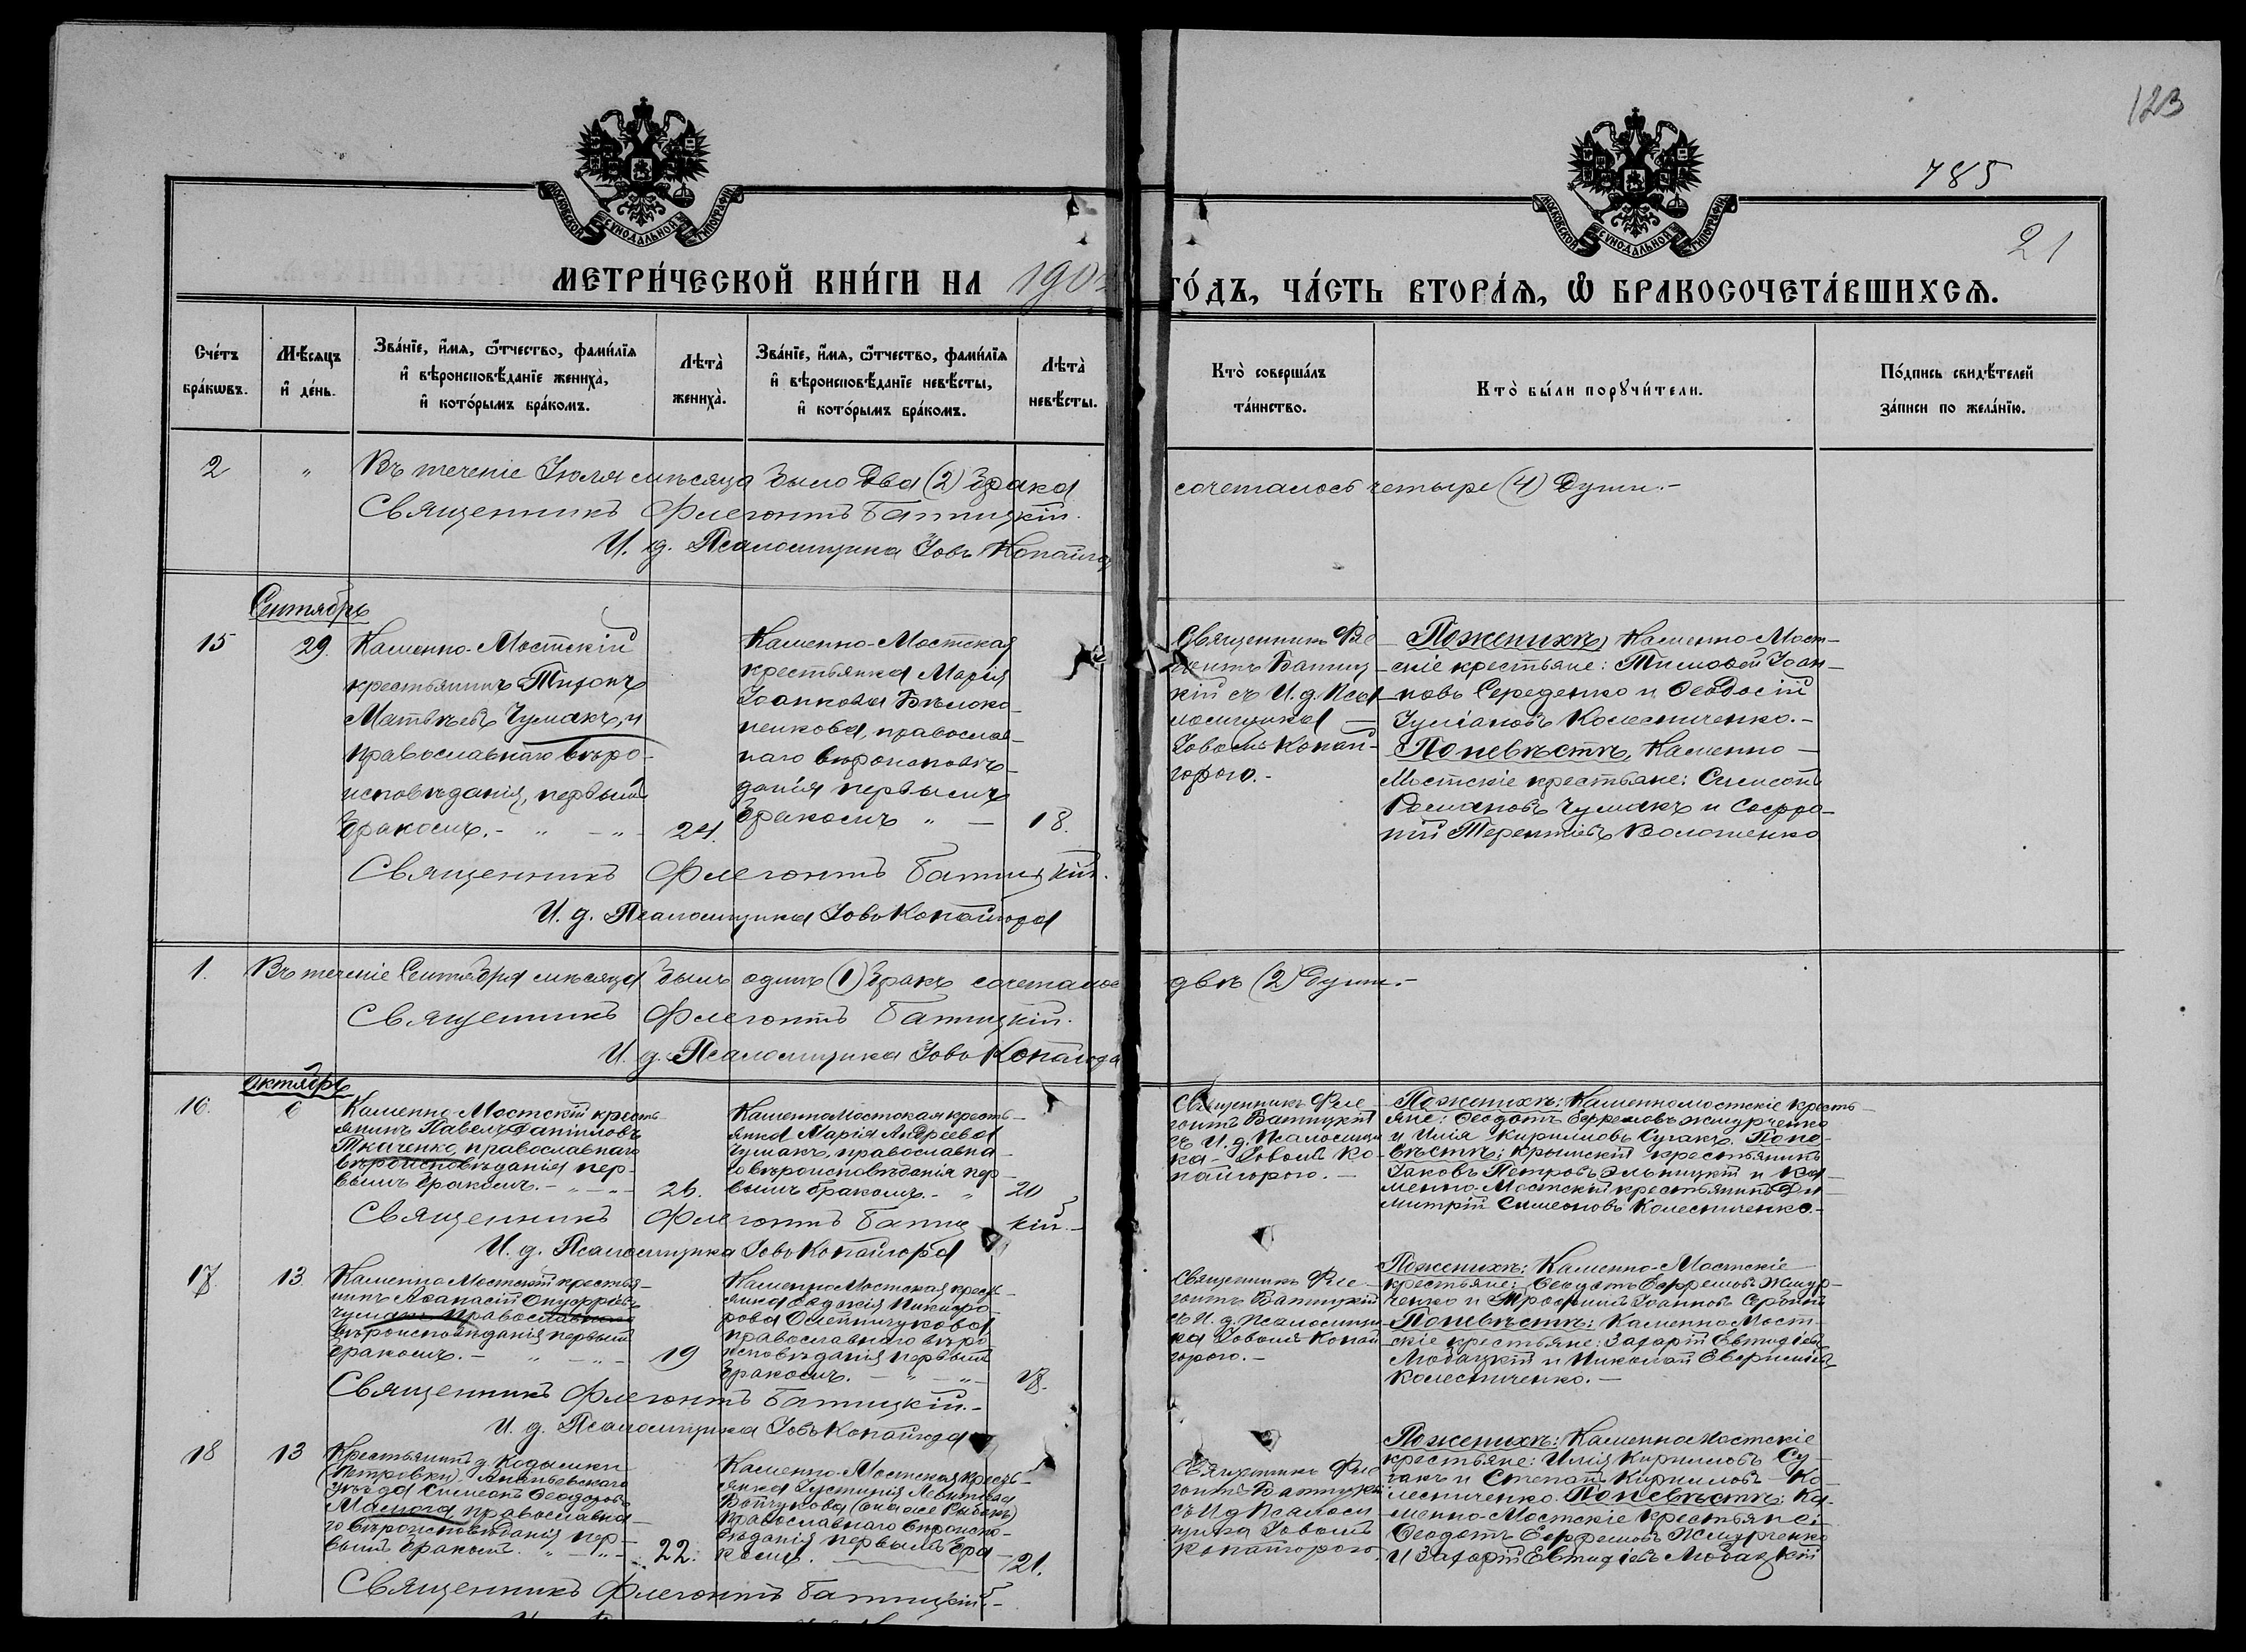 123
785
21
МОСКОВСКОЙ СѴНОДАЛЬНОЙ ТИПОГРАФІИ
МОСКОВСКОЙ СѴНОДАЛЬНОЙ ТИПОГРАФІИ
МЕТРИ́ЧЕСКОЙ КНИ́ГИ НА 190
ГО́ДЪ, ЧА́СТЬ ВТОРА́Ѧ, Ѽ БРАКОСОЧЕТА́ВШИХСѦ.
Сче́тъ
бра́кѡвъ.
Мѣ́сѧцъ
и҆ де́нь.
Зва́нїе, и҆́мѧ, ѻ҆́тчество, фами́лїѧ
и҆ вѣроисповѣ́данїе жениха̀,
и҆ кото́рымъ бра́комъ.
Лѣта̀
жениха̀.
Зва́нїе, и҆́мѧ, ѻ҆́тчество, фами́лїѧ
и҆ вѣроисповѣ́данїе невѣ́сты,
и҆ кото́рымъ бра́комъ.
Лѣта̀
невѣ́сты.
Кто̀ соверша́лъ
та́инство.
Кто̀ бы́ли порꙋчи́тели.
По́дпись свидѣ́телей
за́писи по жела́нїю.
2 " Въ теченіе Іюля мѣсяца было два (2) брака
сочеталось четыре (4) души.-
Священникъ Флегонтъ Батицкій.
И. д. Псаломщика Іовъ Копайгор
Сентябрь
15
29.
Каменно-Мостскій
крестьянинъ Тихонъ
Матвѣевъ Чумакъ,
православнаго вѣро-
исповѣданія, первымъ
бракомъ. - " - " -
24.
Каменно-Мостская
крестьянка Марія
Іоаннова Бѣлоко-
пенкова, православ-
наго вѣроисповѣ-
данія первымъ
бракомъ " -
18.
Священникъ Фле
гонтъ Батиц
кій съ И. д. Пса
ломщика -
Іовомъ Копай-
горою.-
По женихѣ, Каменно-Мост-
скіе крестьяне: Тимофей Іоан-
новъ Середенко и Ѳеодосій
Іуліановъ Колесниченко.-
По невѣстѣ, Каменно-
Мостскіе крестьяне: Симеонъ
Романовъ Чумакъ и Софро-
ній Терентіевъ Волошенко
Священникъ Флегонтъ Батицкій.
И. д. Псаломщика Іовъ Копайгора
1. Въ теченіе Сентября мѣсяца былъ одинъ (1) бракъ сочеталос
двѣ (2) души.-
Священникъ Флегонтъ Батицкій.
И. д. Псаломщика Іовъ Копайгора
Октябрь
16.
6
Каменно-Мостскій кресть-
янинъ Павелъ Даніиловъ
Ткаченко, православнаго
вѣроисповѣданія пер-
вымъ бракомъ. - " - " -
26.
Каменномостская кресть-
янка Марія Андреева
Чумакъ, православна-
го вѣроисповѣданія пер-
вымъ бракомъ. - "
20
Священникъ Фле-
гонтъ Батицкій
съ И. д. Псаломщи
ка - Іовомъ Ко-
пайгорою.-
По женихѣ: Каменномостскіе кресть-
яне: Ѳеодотъ Ефремовъ Жмурченко
и Илія Кирилловъ Сугакъ. По не-
вѣстѣ: Крымскій крестьянинъ
Іаковъ Петровъ Ельницкій и Ка-
менно-Мостскій крестьянинъ Ди-
митрій Симеоновъ Колесниченко.-
Священникъ Флегонтъ Батицкій.-
И. д. Псаломщика Іовъ Копайгора
17.
13
Каменно Мостскій крестья-
нинъ Аѳанасій Онуфріевъ
Чумакъ православнаго
вѣроисповѣданія первымъ
бракомъ. - " - " -
19
Каменно Мостская кресть-
янка Евдокія Никифо-
рова Олейничукова
православнаго вѣро-
исповѣданія первымъ
бракомъ. - " - " -
18.
Священникъ Фле-
гонтъ Батицкій
съ И. д. Псаломщи
ка Іовомъ Копай
горою.-
По женихѣ: Каменно-Мостскіе
крестьяне: Ѳеодотъ Ефремовъ Жмур-
ченко и Трофимъ Іоанновъ
По невѣстѣ: Каменно Мост-
скіе крестьяне: Захарій Евтихіевъ
Любацкій и Николай
Колесниченко.-
Священникъ Флегонтъ Батицкій.-
И. д. Псаломщика Іовъ Копайгора
18
13
Крестьянинъ д. Кодымки
(Петровки) Ананьевскаго
уѣзда Симеонъ Ѳеодоровъ
православна-
го вѣроисповѣданія пер-
вымъ бракомъ. " - " -
22.
Каменно-Мостская кресть-
янка Іустинія Леонтіева
Войчукова (она же Рыбакъ)
православнаго вѣроиспо-
вѣданія первымъ бра-
комъ.
21.
Священникъ Фле
гонтъ Батицкій
съ И д Псаломщ
щика Іовомъ
Копайгорою
По женихѣ: Каменномостскіе
крестьяне: Илія Кирилловъ Су-
гакъ и Степанъ Кирилловъ Ко-
лесниченко. По невѣстѣ: Ка-
менно-Мостскіе крестьяне:
Ѳеодотъ Ефремовъ Жмурченко
и Захарій Евтихіевъ Любацкій
Священникъ Флегонтъ Батицкій.-